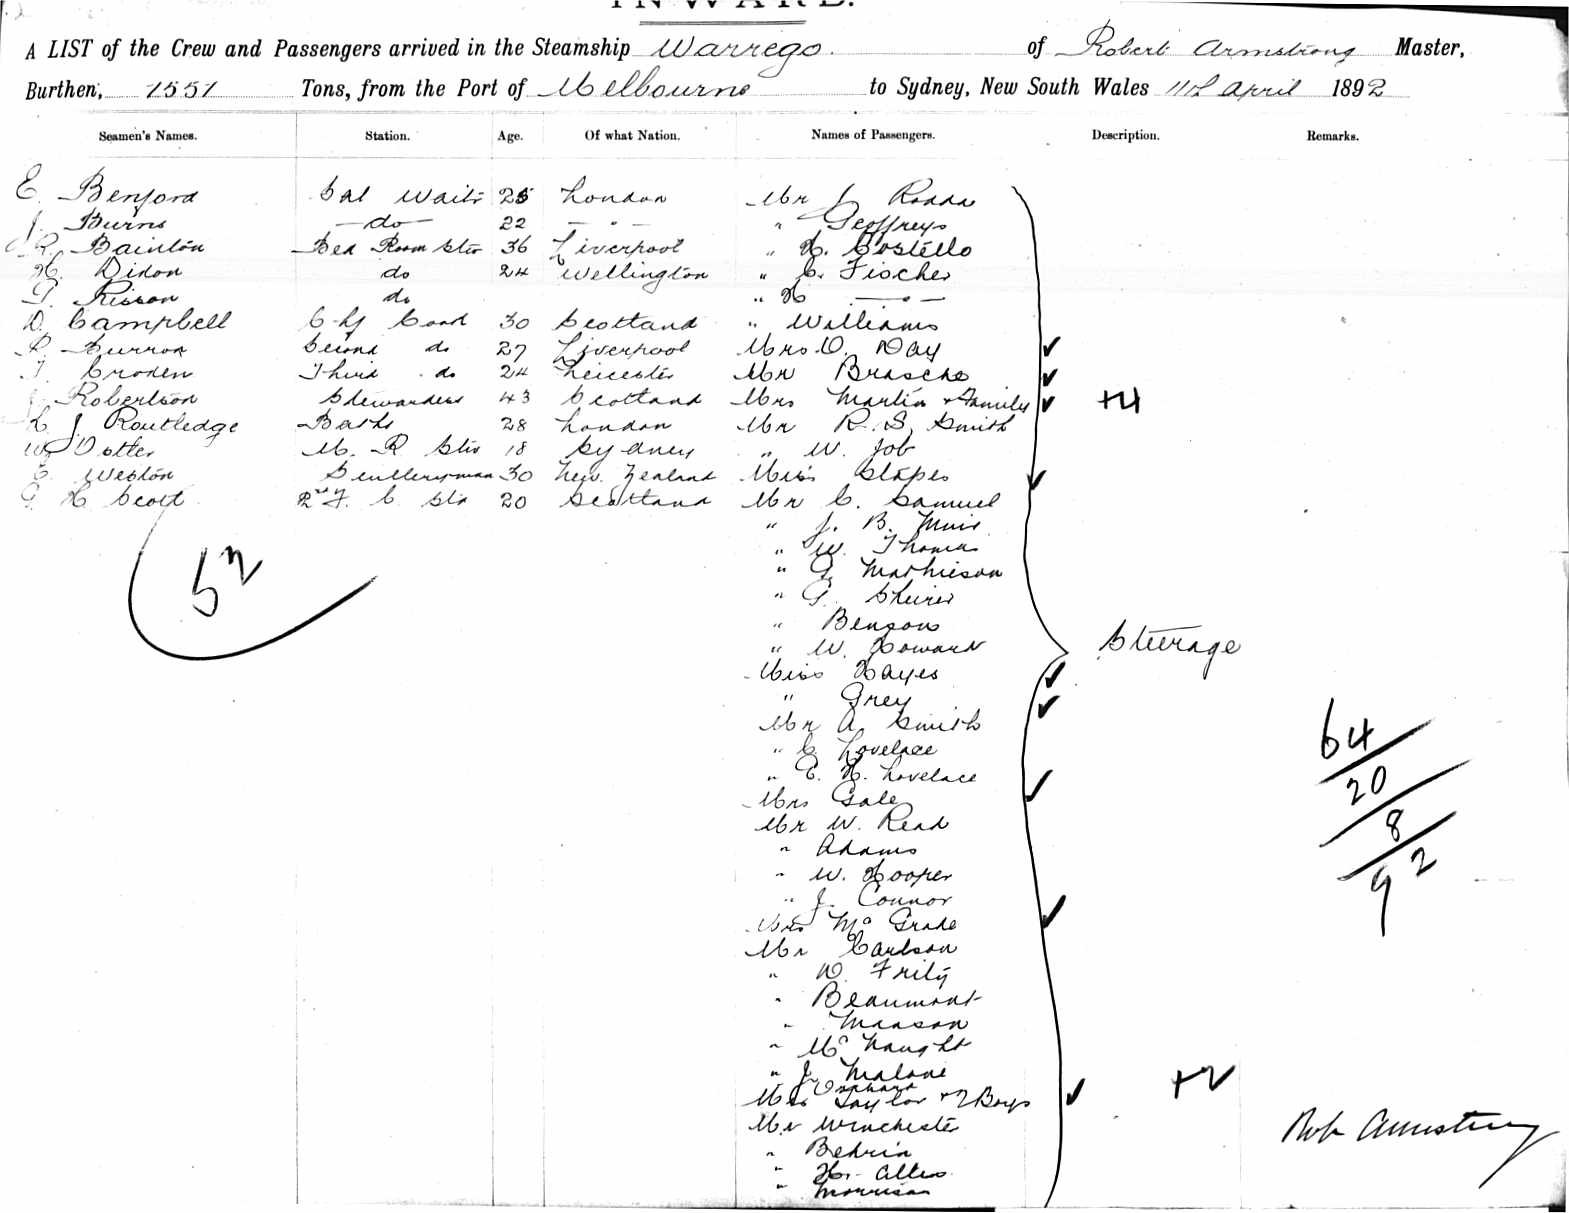 INWARD.
A LIST of the Crew and Passengers arrived in the Steamship Warrego of Robert Armstrong Master,
Burthen, 1551 Tons, from the Port of Melbourne to Sydney, New South Wales 11th April 1892
Seamen's Names. Station. Age. Of what Nation. Names of Passengers. Description. Remarks.
E. Benford Sal Waiter 25 London Mr J. Rodda
J. Burns -do- 22 - " - " Geoffreys
R. Bainton Bed Room Stw 36 Liverpool " H. Costello
H. Dixon do 24 Wellington " C. Fischer
G. do " H - " -
D. Campbell Chf Cook 30 Scotland " Williams
Second do 27 Liverpool Mrs O. Day
T. Croden Third do 24 Leicester Mr Brasche
Robertson Stewardess 43 Scotland Mrs Martin & Family +4
J Routledge Baths 28 London Mr R. S. Smith
W Potter M. R Stw 18 Sydney " W. Job
E Weston Sculleryman 30 New Zealand Miss Stapes
G H Scott 2nd F. C. Stw 20 Scotland Mr C. Samuel
" J. B. Muir
" W. Thomas
52 " G. Mathieson
" G.
" Bensons
" W. Howard Steerage
Miss Hayes
" Grey
Mr A. Smith 64
" C Lovelace
" E. H. Lovelace 20
Mrs Gale
Mr W. Read 8
" Adams
" W. Hooper 92
" J. Connor
Mrs McGrade
Mr Carlson
" D. Fritz
" Beaumont
" Maason
" McNaught
" J. Malone
Mrs Taylor & 2 Boys +2
Mr Winchester
" Bedrin Rob Armstrong
" H.
" Morrison